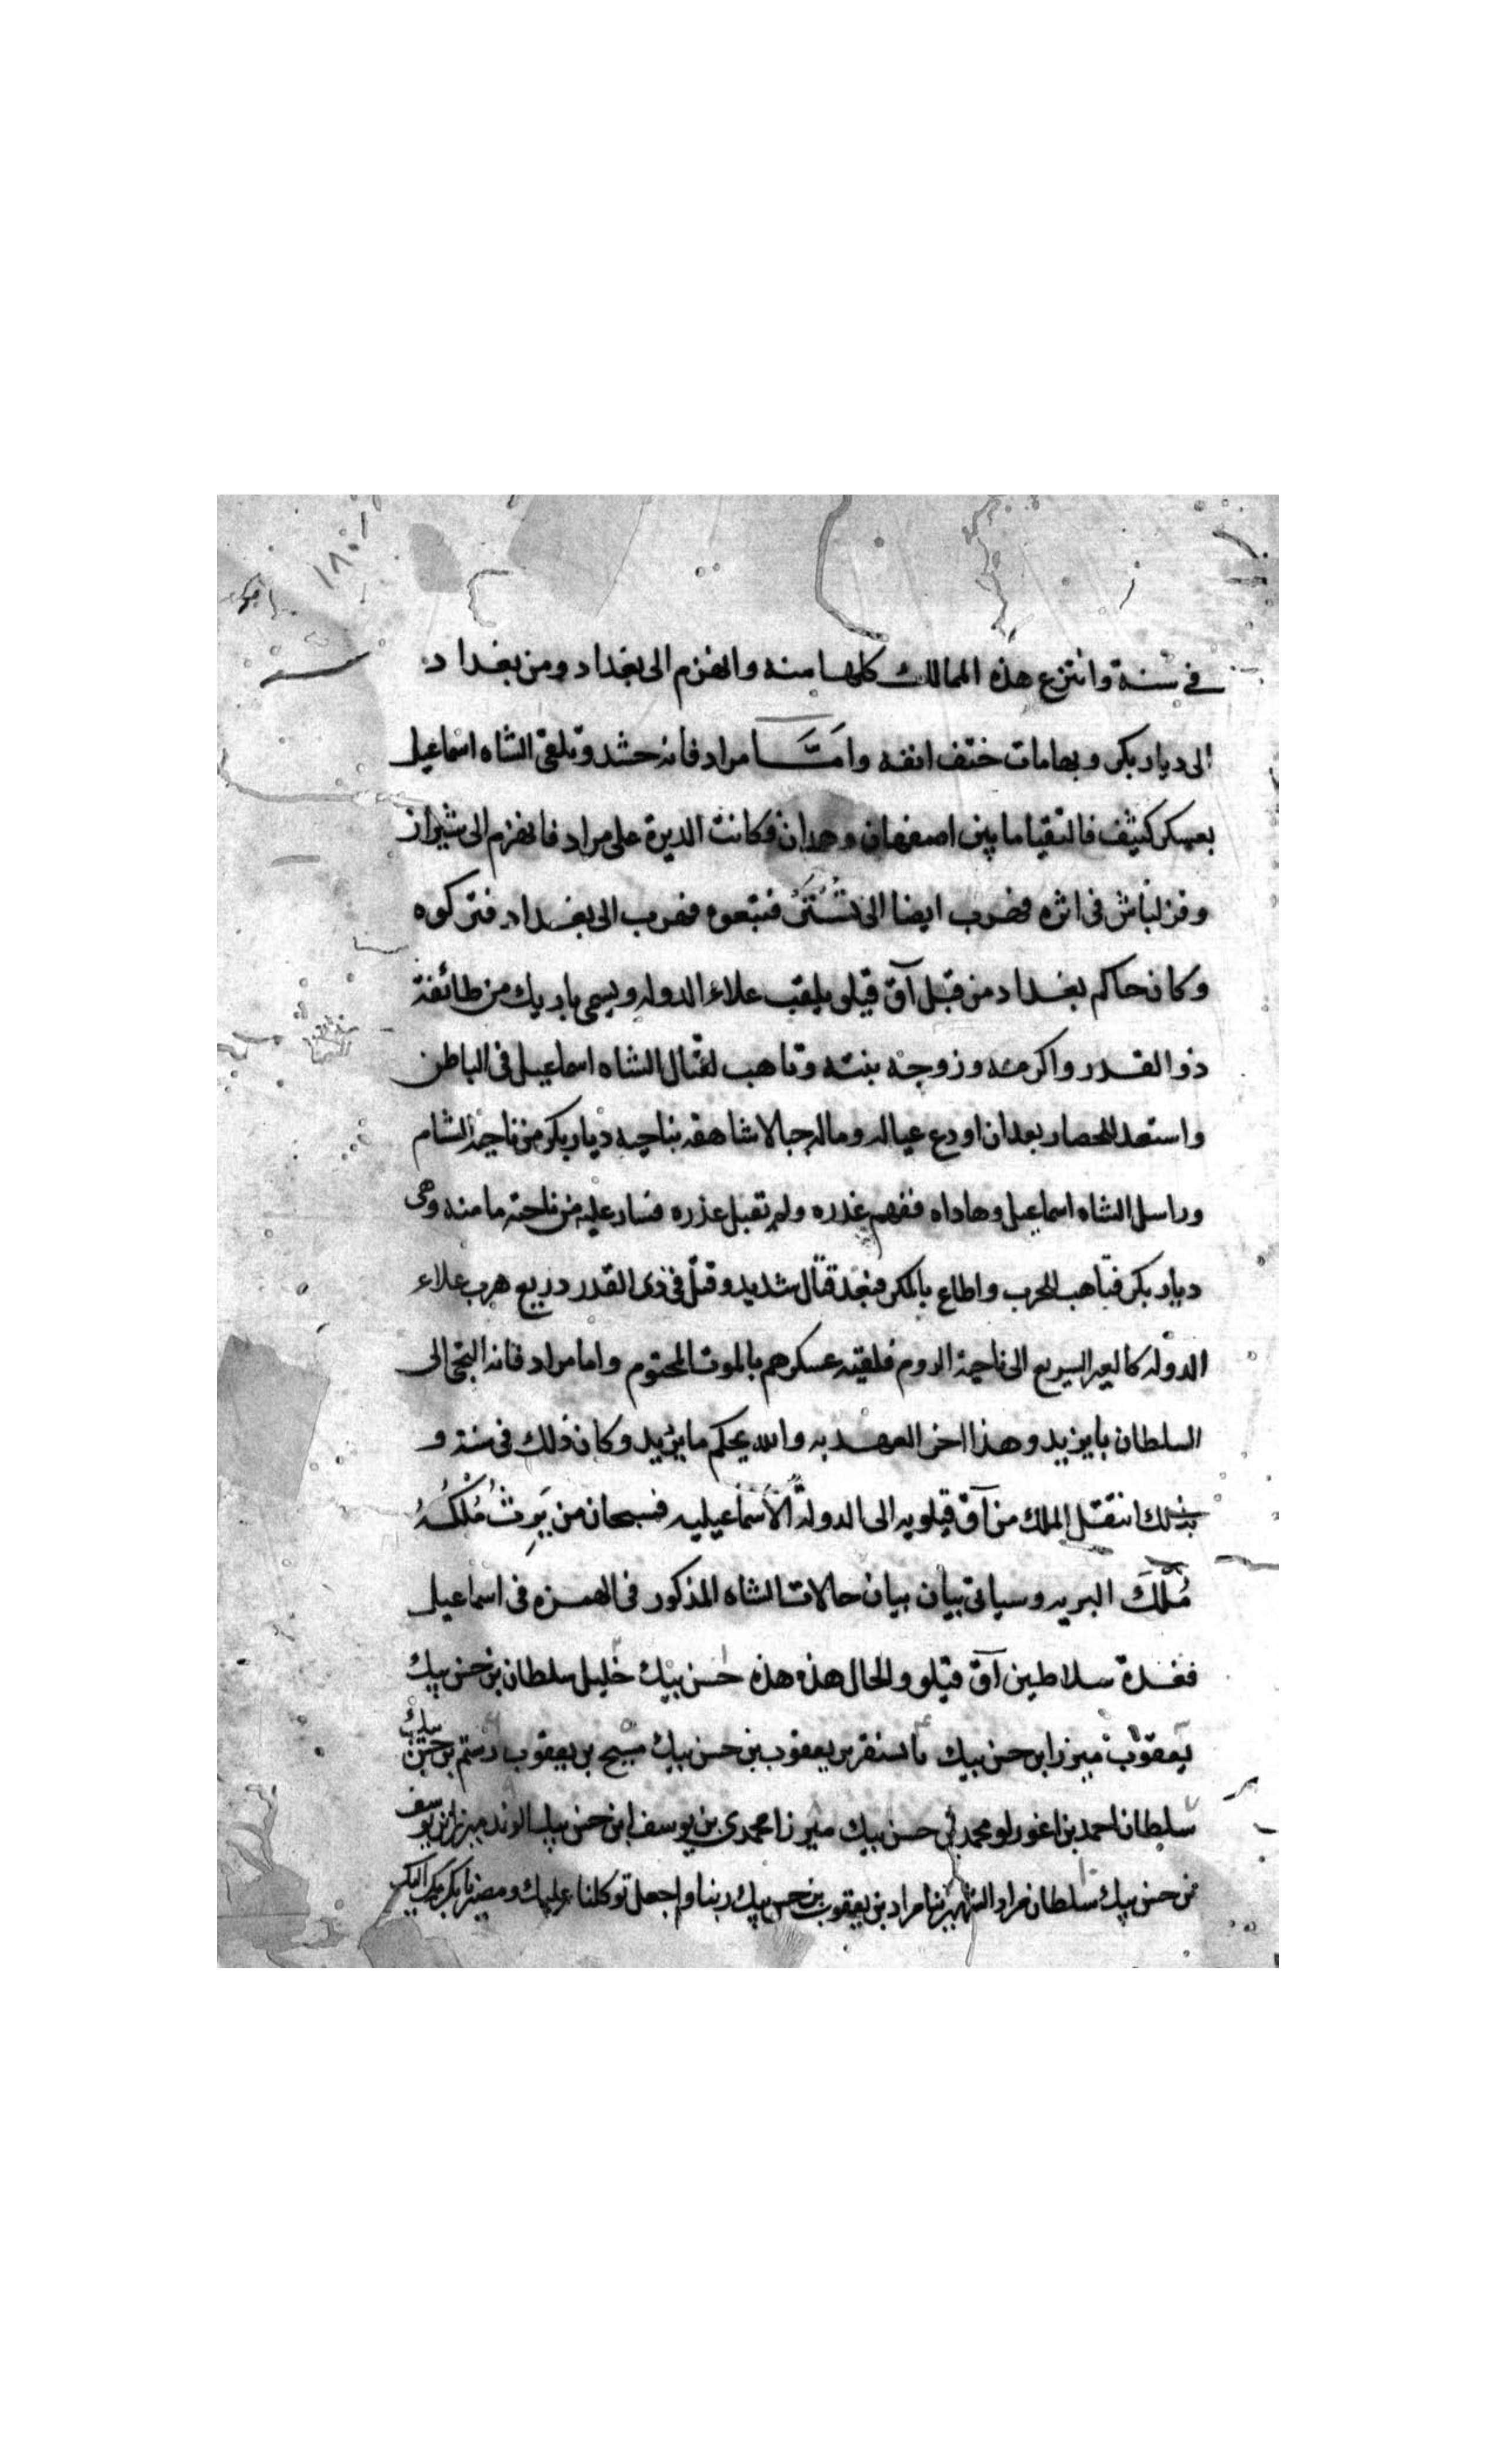 ١٨٠١
في سنة وانتزع هذه الممالك كلها منه وانهزم الى بغداد ومن بغداد
الى ديار بكر وبها مات حتف انفه وامَّا مراد فانه حشد وتلقى الشاه اسماعيل
بعسكر كثيف فالتقيا ما بين اصفهان وهمدان فكانت الديرة على مراد فانهزم الى شيراز
وقزلباش في اثره فهرب ايضا الى تُسْتَر فتبعوه فهرب الى بغداد فتركوه
وكان حاكم بغداد من قبل آق قيلو يلقب علاء الدوله ويسمى باربك من طائفة
ذو القدر واكرمه وزوجه بنته وتاهب لقتال الشاه اسماعيل في الباطن
واستعد للحصار بعد ان اودع عياله وماله جبالا شاهقه بناحيه ديار بكر من ناحية الشام
وراسل الشاه اسماعيل وهاداه ففهم غدره ولم تقبل عذره فسار عليه من ناحته مامنه وهى
ديار بكر فتاهب للحرب واطاع بالمكر فبعد قتال شديد وقتل في ذى القدر دريع هرب علاء
الدوله كالبعير السريع الى ناحية الروم فلقيته عسكرهم بالموت المحتوم واما مراد فانه التجى الى
السلطان بايزيد وهذا اخر العهد به والله يحكم ما يريد وكان ذلك في سنة و
بذلك انتقل الملك من آق قيلويه الى الدولة الأسماعيليه فسبحان من يَرِثُ مُلْكُهُ
مُلْكَ البريه وسياتى بيان بيان حالات الشاه المذكور فى الهمزه فى اسماعيل
فعدة سلاطين آق قيلو والحال هذه هذه حسن بيك خليل سلطان بن حسن بيك
يعقوب ميرزا بن حسن بيك باسنقر بن يعقوب بن حسن بيك مسيح بن يعقوب رستم بن حسن بيك
سلطان احمد بن اغورلو محمد بن حسن بيك ميرزا محمدي بن يوسف ابن حسن بيك الوند ميرزا بن يوسف
بن حسن بيك سلطان مراد بن يعقوب بن حسن بيك ربنا واجعل توكلنا عليك